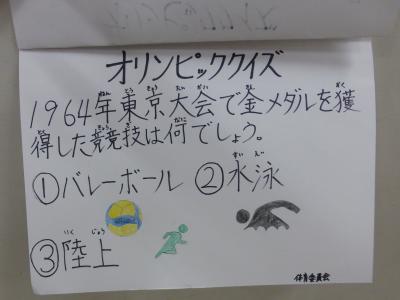 オリンピッククイズ
1964年東京大会で金メダルを獲
得した競技は何でしょう。
①バレーボール ②水泳
③陸上
体育委員会